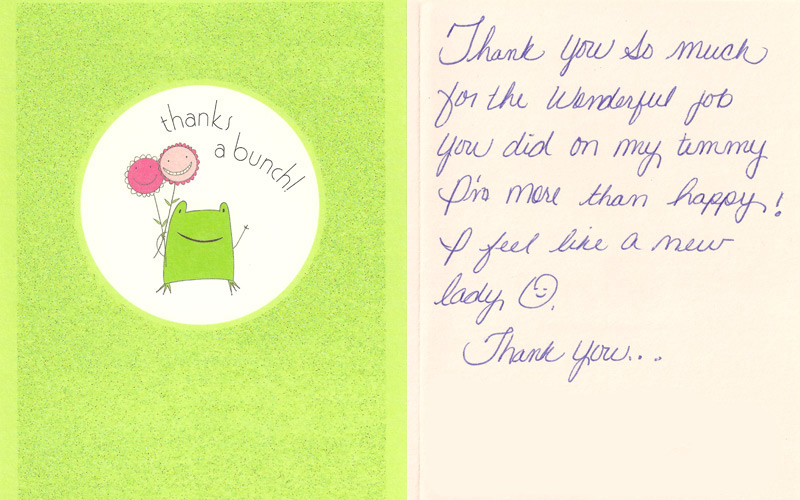 thanks
a bunch!
Thank you so much
for the wonderful job
you did on my tummy
I'm more than happy!
I feel like a new
lady.
Thank you...